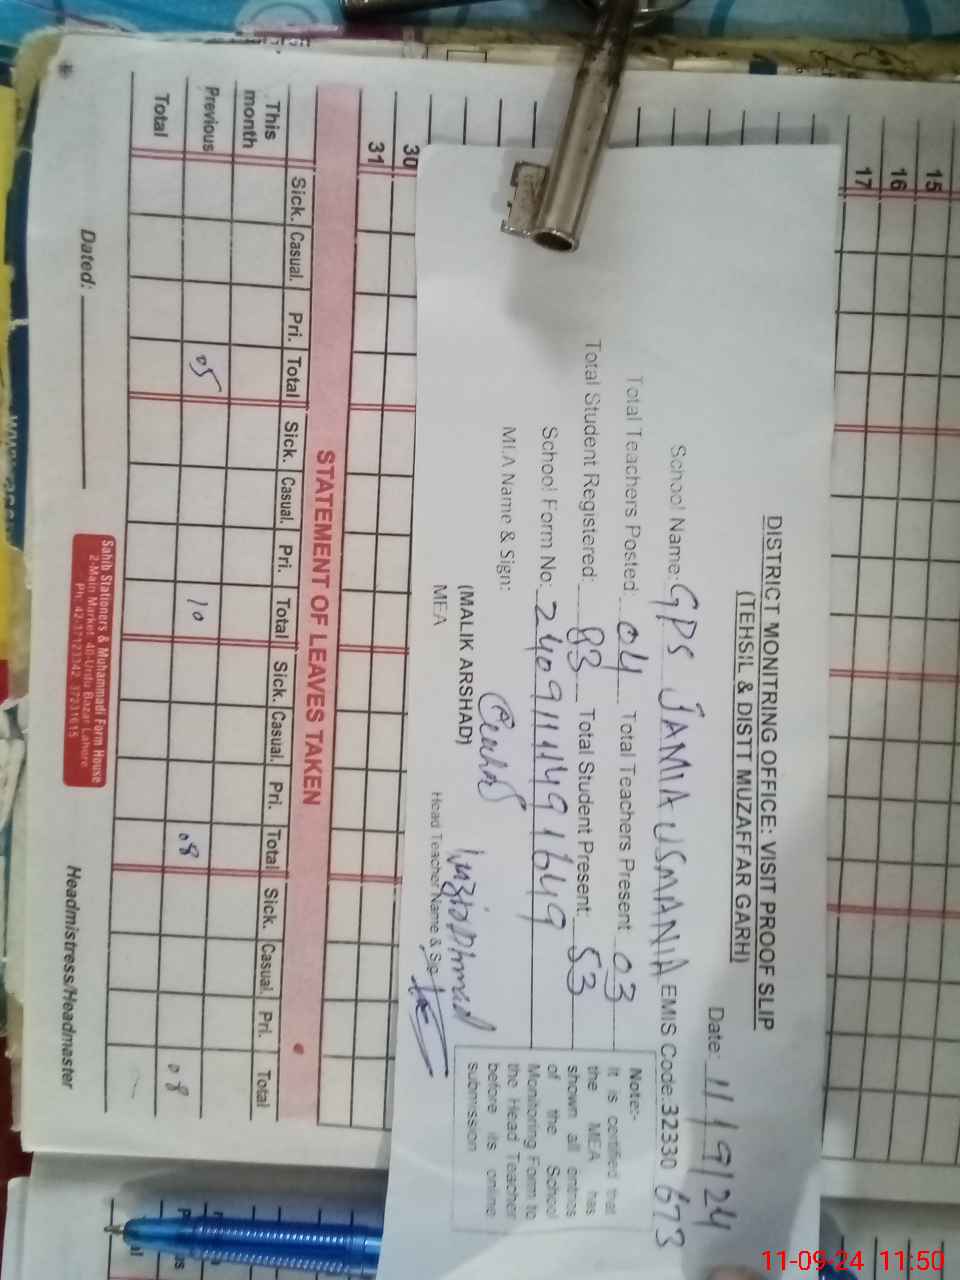 DISTRICT MONITRING OFFICE: VISIT PROOF SLIP
(TEHSIL & DISTT MUZAFFAR GARH)
Date: 11/9/24
School Name: GPS JAMIA USMANIA EMIS Code: 32330 673
Total Teachers Posted: 04 Total Teachers Present 03
Total Student Registered: 83 Total Student Present: 53
School Form No: 2409111149 1649
MEA Name & Sign:
(MALIK ARSHAD)
MEA
Head Teacher Name & Sig
Note:-
It is certified that
the MEA has
shown all entries
of the School
Monitoring Form to
the Head Teacher
before its online
submission
15
16
17
30
31
STATEMENT OF LEAVES TAKEN
Sick. Casual. Pri. Total Sick. Casual. Pri. Total Sick. Casual. Pri. Total Sick. Casual. Pri. Total
This month
Previous 05 10 08 08
Total
Dated:
Headmistress/Headmaster
Sahib Stationers & Muhammadi Form House
2-Main Market, 40-Urdu Bazar Lahore
Ph: 42-37123342, 37231615
11-09-24 11:50